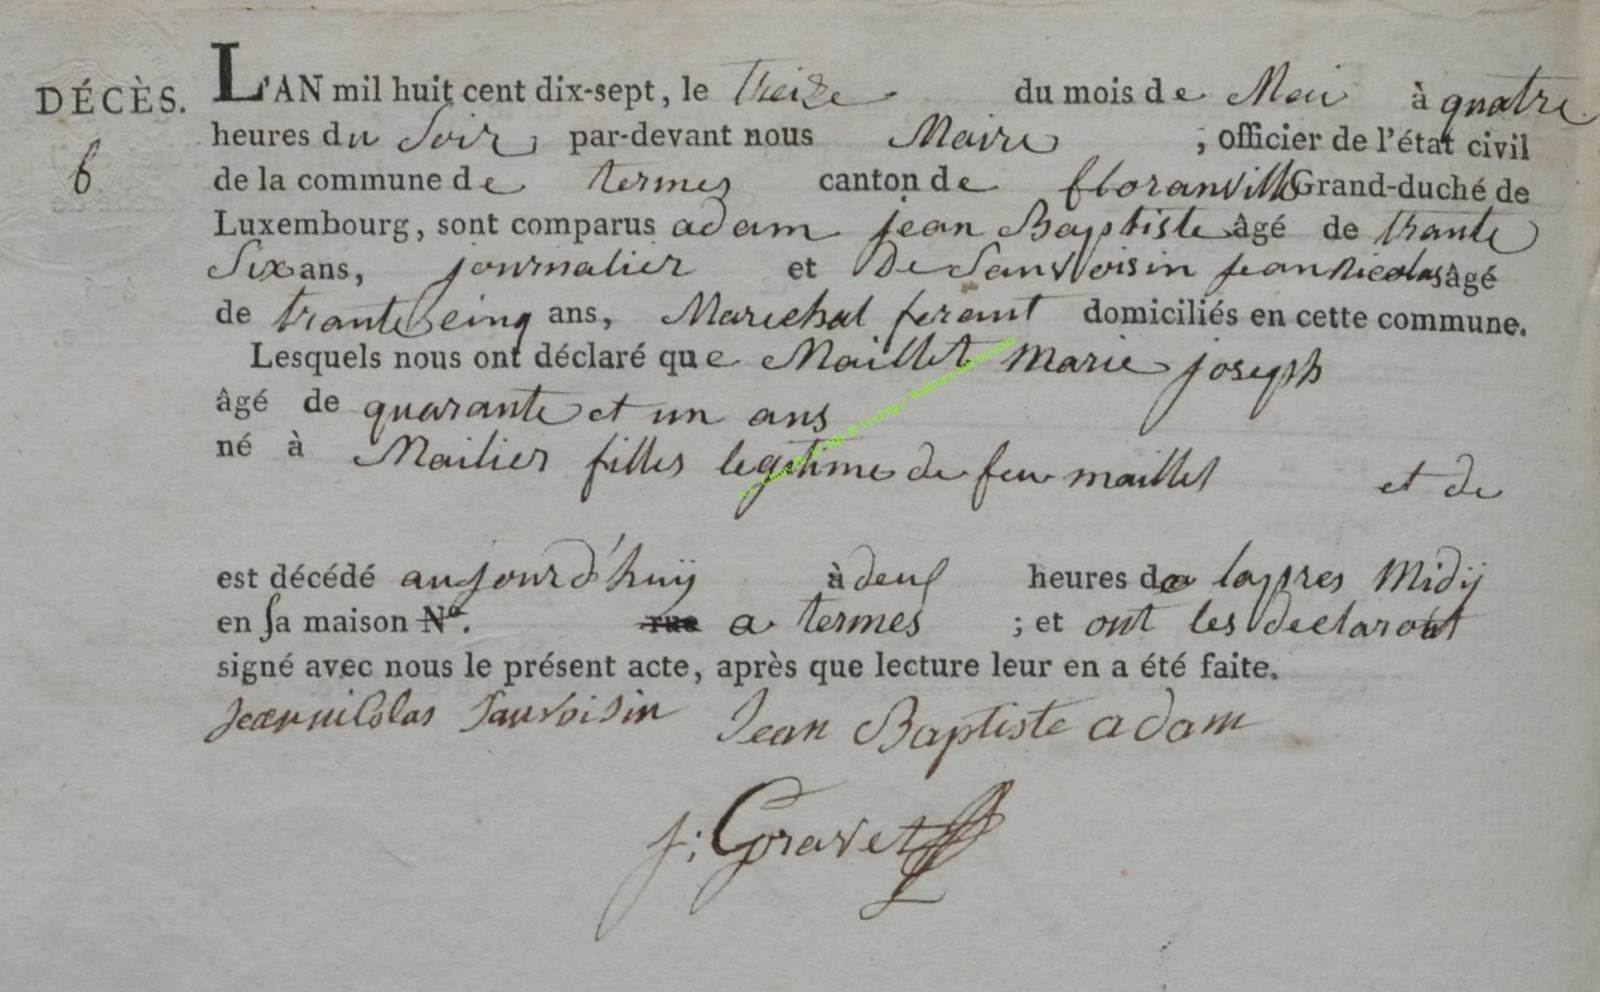 DÉCÈS.
6
L'AN mil huit cent dix-sept, le treize du mois de Mai à quatre
heures du Soir, par-devant nous Maire ; officier de l'état civil
de la commune de termes canton de floranville Grand-duché de
Luxembourg, sont comparus adam jean Baptiste âgé de trante
Six ans, journalier et De Sanvoisin jean nicolas âgé
de trante cinq ans, Marechal ferant domiciliés en cette commune.
Lesquels nous ont déclaré que Maillet Marie joseph
âgé de quarante et un ans
né à Mailier filles legtime de feu maillet et de
est décédé aujourd'huÿ à deux heures de lapres Midÿ
en sa maison N°. rue a termes ; et ont les declarant
signé avec nous le présent acte, après que lecture leur en a été faite.
Jean nicolas Sanvoisin Jean Baptiste adam
j; Gravet